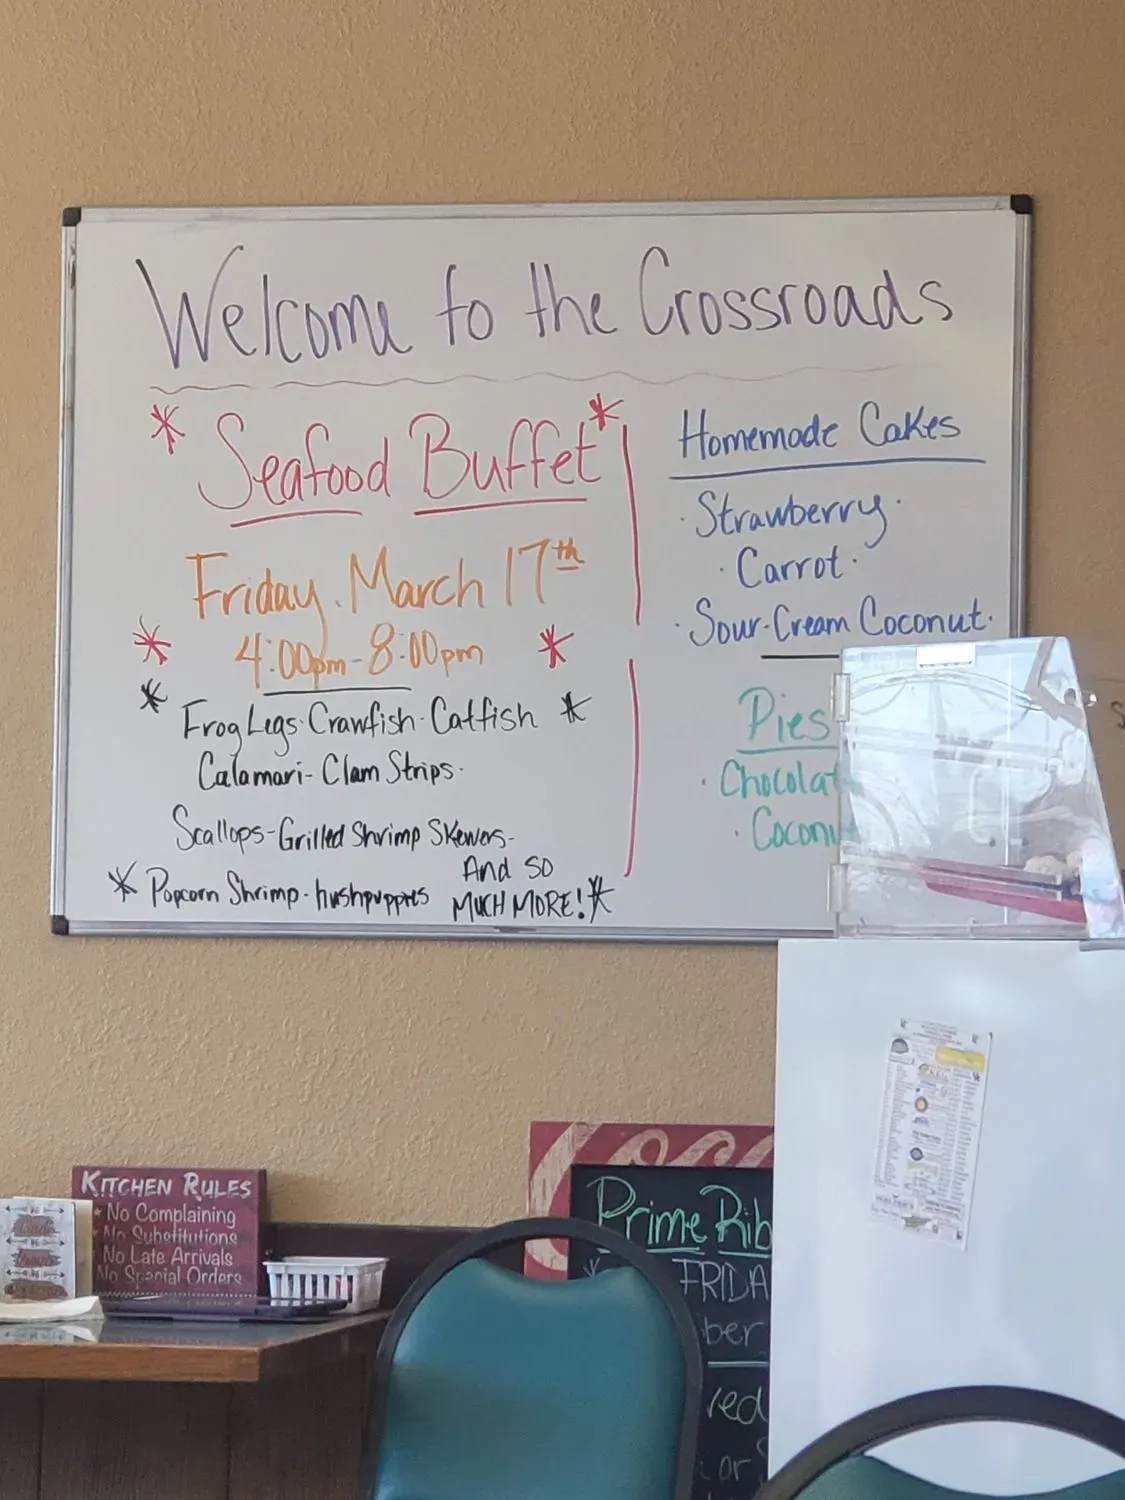 Welcome to the Crossroads
Seafood Buffet
Friday, March 17th
4:00pm-8:00pm
Frog Legs · Crawfish · Catfish
Calamari - Clam Strips -
Scallops - Grilled Shrimp Skewers -
Popcorn Shrimp - hushpuppies
And so
MUCH MORE!
Homemade Cakes
· Strawberry ·
· Carrot ·
· Sour-Cream Coconut ·
Pies
· Chocolat
· Coconu
KITCHEN RULES
No Complaining
No Substitutions
No Late Arrivals
No Special Orders
Prime Rib
FRIDA
ber
red
or